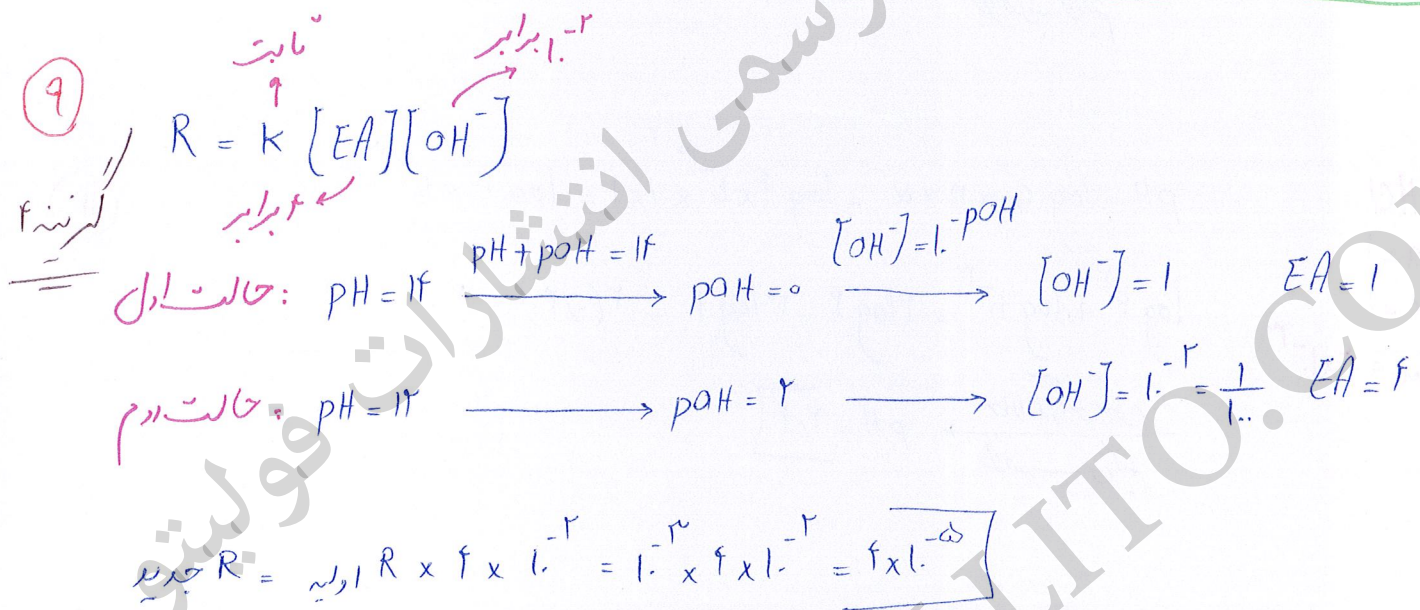 ثابت
۱۰⁻² برابر
۹
R = k [EA][OH⁻]
۴ برابر
گزینه ۴
حالت اول: pH = ۱۴ pH + pOH = ۱۴ → pOH = ۰ [OH⁻] = ۱۰^-pOH → [OH⁻] = ۱ EA = ۱
حالت دوم: pH = ۱۲ → pOH = ۲ → [OH⁻] = ۱۰⁻² = ۱/۱۰۰ EA = ۴
جدید R = اولیه R × ۴ × ۱۰⁻² = ۱۰⁻³ × ۴ × ۱۰⁻² = ۴ × ۱۰⁻⁵
رسمی انتشارات فولیتو
LITO.CO